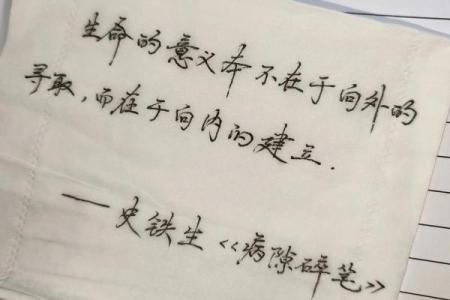 生命的意义本不在于向外的
寻取,而在于向内的建立.
——史铁生《病隙碎笔》